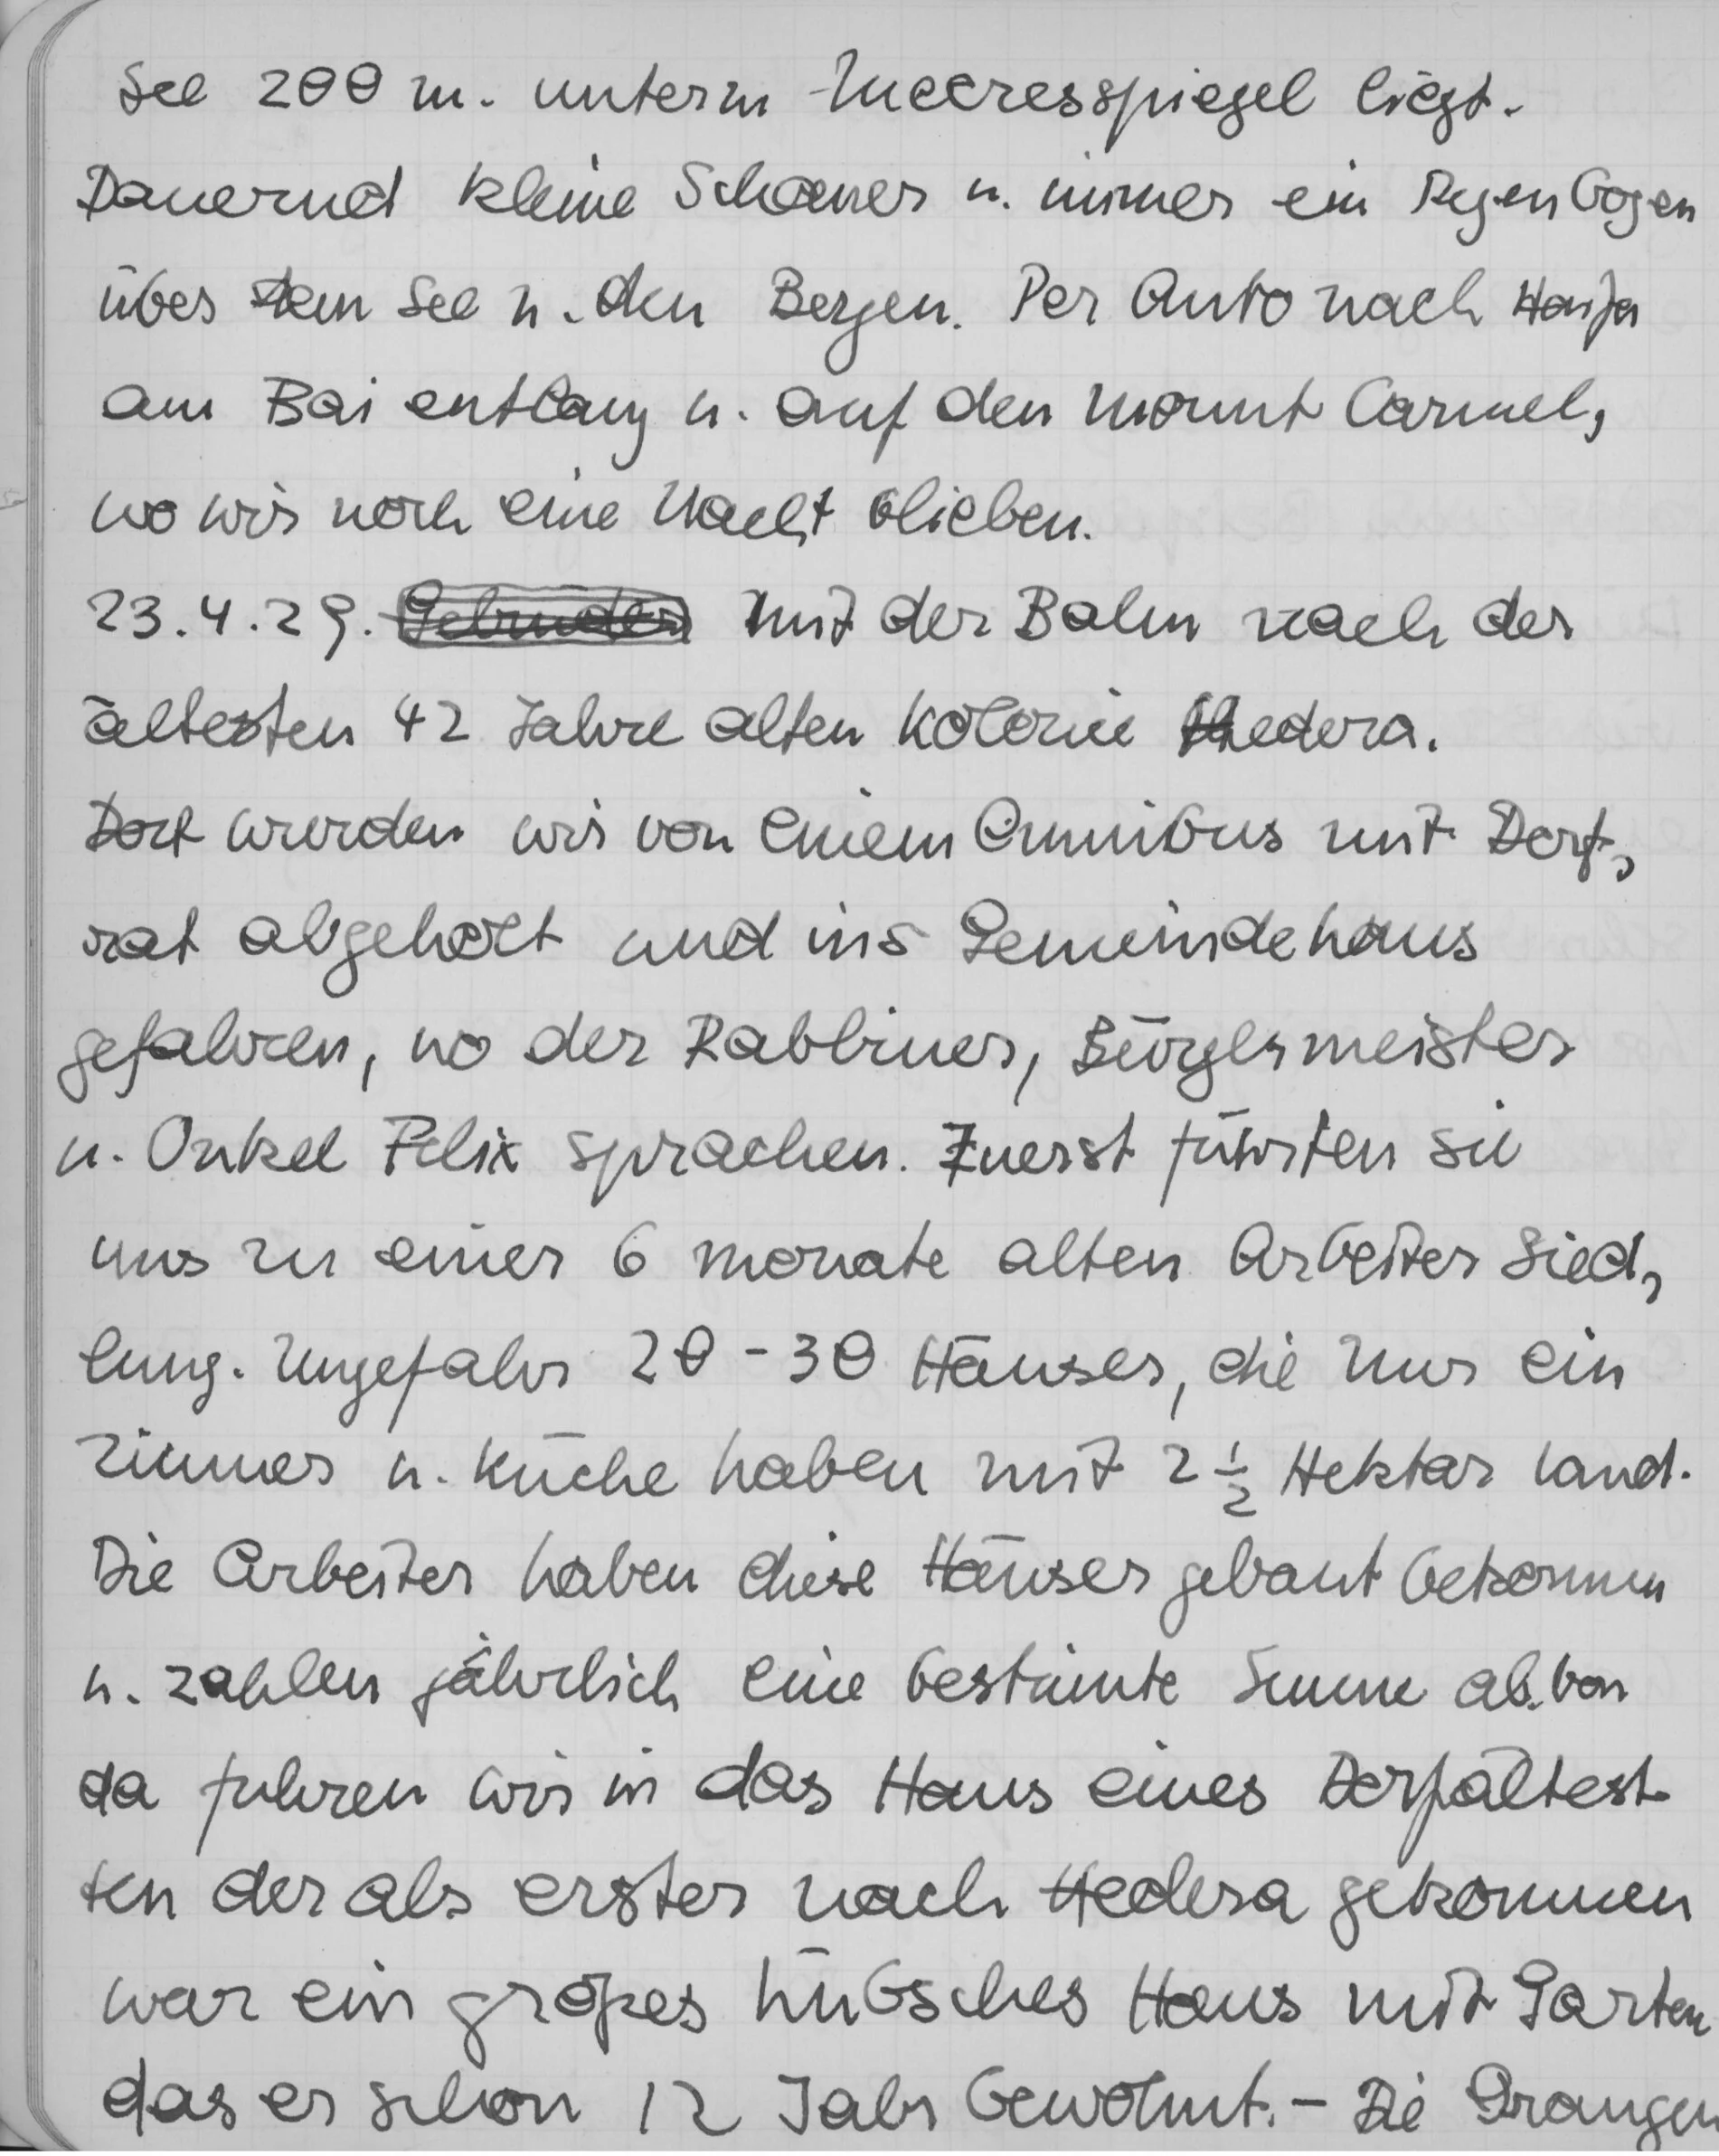 See 200 m. unterm Meeresspiegel liegt.
Dauernd kleine Schauer u. immer ein Regenbogen
über dem See u. den Bergen. Per Auto nach Haifa
am Bai entlang u. auf den Mount Carmel,
wo wir noch eine Nacht blieben.
23.4.29. mit der Bahn nach der
ältesten 42 Jahre alten Kolonie Hedera.
Dort wurden wir von einem Omnibus mit Dorf,
rat abgeholt und ins Gemeindehaus
gefahren, wo der Rabbiner, Bürgermeister
u. Onkel Felix sprachen. Zuerst führten sie
uns zu einer 6 Monate alten Arbeiter Sied,
lung. Ungefahr 20-30 Häuser, die nur ein
Zimmer u. Küche haben mit 2 1/2 Hektar Land.
Die Arbeiter haben diese Häuser gebaut bekommen
u. zahlen jährlich eine bestimte Summe ab. Von
da fuhren wir in das Haus eines Dorfältest
ten der als erster nach Hedera gekommen
war ein großes hübsches Haus mit Garten
das er schon 12 Jahr bewohnt. - Die Orangen